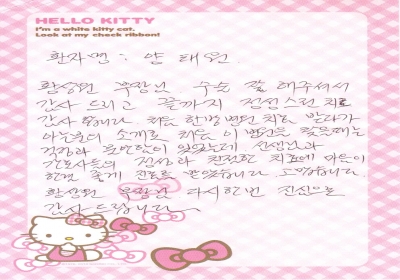 HELLO KITTY
I'm a white kitty cat.
Look at my check ribbon!
환자명 : 양태원
황성연 부장님 수술 잘 해주셔서
감사 드리고 끝까지 정성스런 치료
감사합니다. 처음 한방 병원 치료 받다가
아는분의 소개로 처음 이 병원을 찾을때는
걱정과 불안감이 있었는데 선생님과
간호사들의 정성과 친절한 치료에 마음이
한결 좋게 진료를 받았습니다. 고맙습니다.
황성연 부장님 다시한번 진심으로
감사드립니다